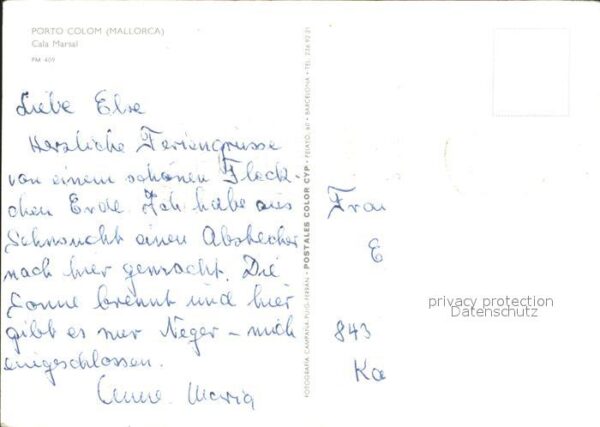 PORTO COLOM (MALLORCA)
Cala Marsal
PM 409
Liebe Else
Herzliche Feriengrüsse
von einem schönen Fleck-
chen Erde. Ich habe aus
Sehnsucht einen Abstecher
nach hier gemacht. Die
Sonne brennt und hier
gibt es nur Neger – mich
eingeschlossen.
Anne Maria
FOTOGRAFÍA CAMPAÑÁ-PUIG-FERRÁN - POSTALES COLOR CYP - FELAYO, 60 - BARCELONA - TEL. 236 92 21
Frau
E
843
Ka
privacy protection
Datenschutz